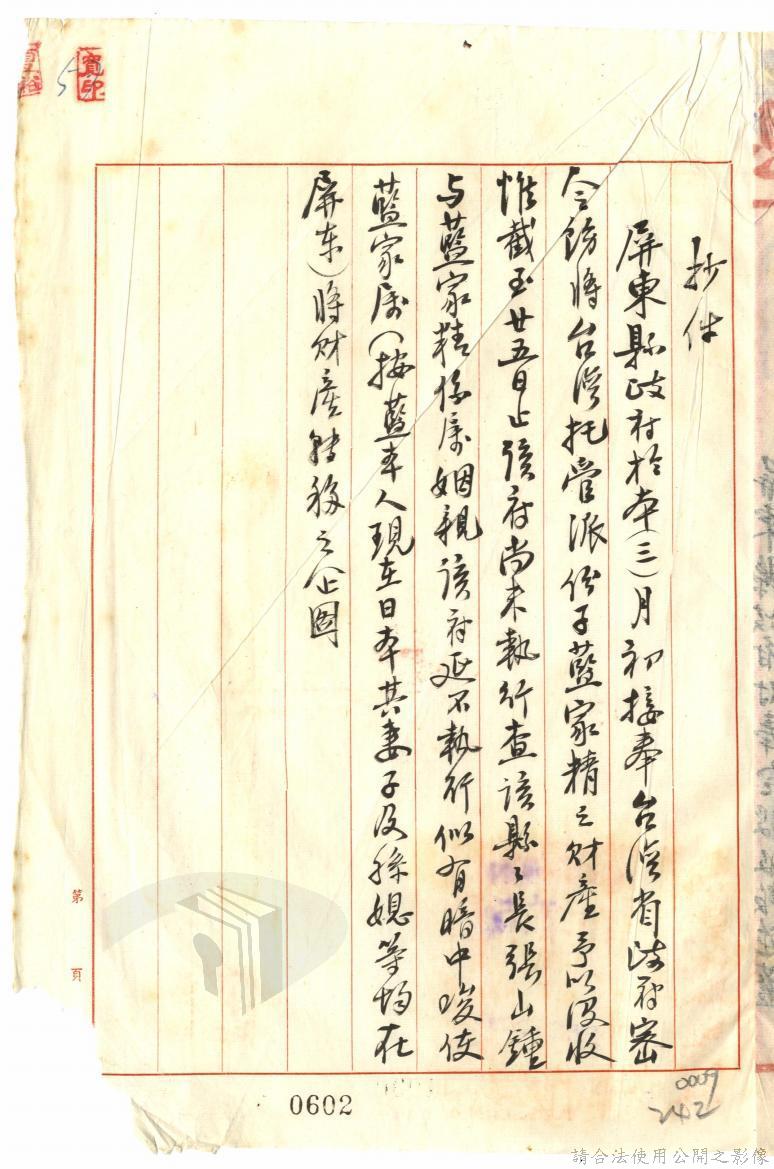 抄件
屏東縣政府於本(三)月初接奉台湾省政府密
令飭將台湾托管派份子藍家精之財產予以没收
惟截至廿五日止該府尚未執行查該縣々長張山鐘
与藍家精係属姻親該府延不執行似有暗中唆使
藍家属(按藍本人現在日本其妻子及孫媳等均在
屏东)將财產轉移之企圖
第 頁
0602
0009
242
請合法使用公開之影像